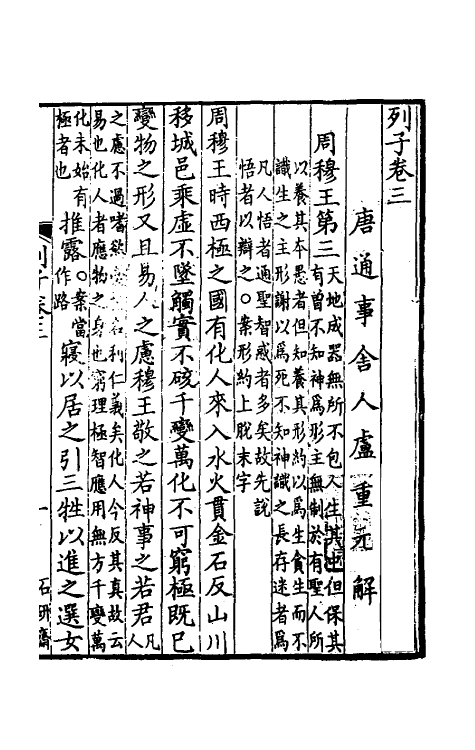 列子卷三
唐通事舍人盧重元解
周穆王第三
天地成器無所不包人生其中但保其
有曾不知神爲形主無制於有聖人所
以養其本愚者但知養其形約以爲生貪生而不
識生之主形謝以爲死不知神識之長存迷者爲
凡人悟者通聖智惑者多矣故先説
悟者以辯之○案形約上脫末字
周穆王時西極之國有化人來入水火貫金石反山川
移城邑乘虛不墜觸實不硋千變萬化不可窮極既已
變物之形又且易人之慮穆王敬之若神事之若君凡人
之慮不過嗜欲名利仁義矣化人今反其真故云
易也化人者應物之身也窮理極智應用無方千變萬
化未始有
極者也
推露○案當作路寢以居之引三牲以進之選女
列子卷三
一
石研齋